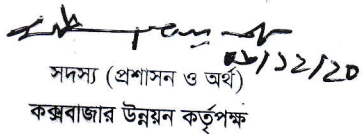 ০৮/১২/২০
সদস্য (প্রশাসন ও অর্থ)
কক্সবাজার উন্নয়ন কর্তৃপক্ষ